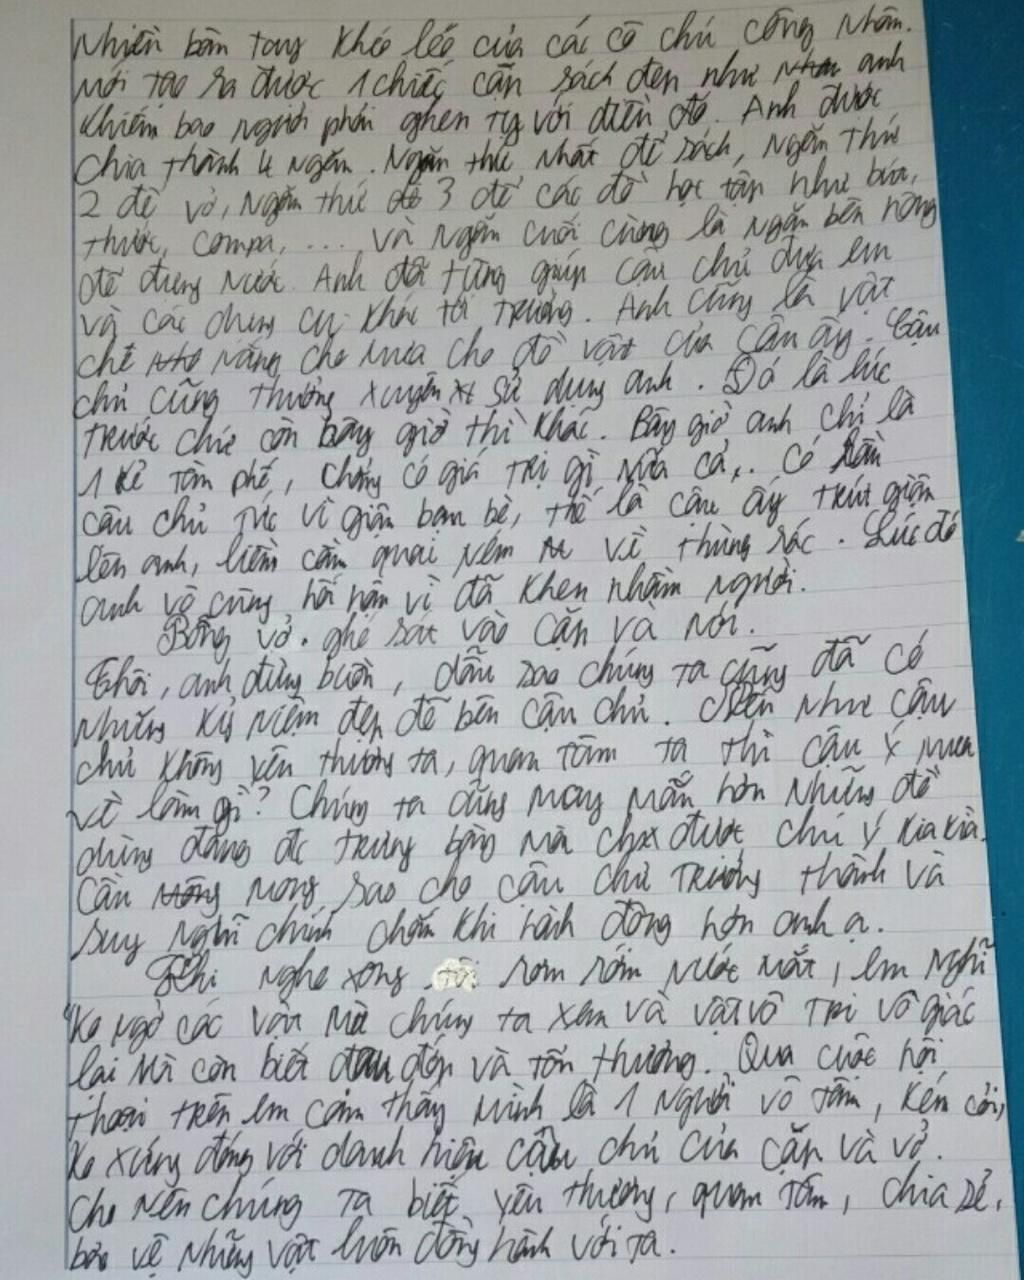 Nhiền bàn tay khéo léo của các cô chú công nhân.
Mới tạo ra được 1 chiếc cặp sách đẹp như anh
khiến bao người phải ghen tỵ với điền đó. Anh được
chia thành 4 ngăn. Ngăn thứ nhất để sách, ngăn thứ
2 để vở, ngăn thứ 3 để các đồ học tập như bút,
thước, compa, ... và ngăn cuối cùng là ngăn bên hông
để đựng nước. Anh đã từng giúp cậu chủ đưa em
và các dụng cụ khác tới trường. Anh cũng là vật
che nắng che mưa cho đồ vật của cậu ấy. Cậu
chủ cũng thường xuyên sử dụng anh. Đó là lúc
trước chứ còn bây giờ thì khác. Bây giờ anh chỉ là
1 kẻ tàn phế, chẳng có giá trị gì nữa cả,.. Có lần
cậu chủ tức vì giận bạn bè, thế là cậu ấy trút giận
lên anh, liền cầm quai ném về thùng rác. Lúc đó
anh vô cùng hối hận vì đã khen nhầm người.
Bỗng vở ghé sát vào cặp và nói.
Thôi, anh đừng buồn, dẫu sao chúng ta cũng đã có
những kỷ niệm đẹp để bên cậu chủ. Nến như cậu
chủ không yên thương ta, quan tâm ta thì cậu ý mua
về làm gì? Chúng ta cũng may mắn hơn những đồ
dùng đang đc trưng bày mà chx được chú ý kia kìa.
Cầu mong sao cho cậu chủ trưởng thành và
suy nghĩ chính chắn khi hành động hơn anh ạ.
Khi nghe xong rơm rớm nước mắt, em nghĩ
"Ko ngờ các vật mà chúng ta xem và vật vô tri vô giác
lại mà còn biết đau đớn và tổn thương. Qua cuộc hội
thoại trên em cảm thấy mình là 1 người vô tâm, kém cỏi,
ko xứng đáng với danh hiệu cậu chủ của cặp và vở.
Cho nên chúng ta biết yêu thương, quan tâm, chia sẻ,
bảo vệ những vật luôn đồng hành với ta.